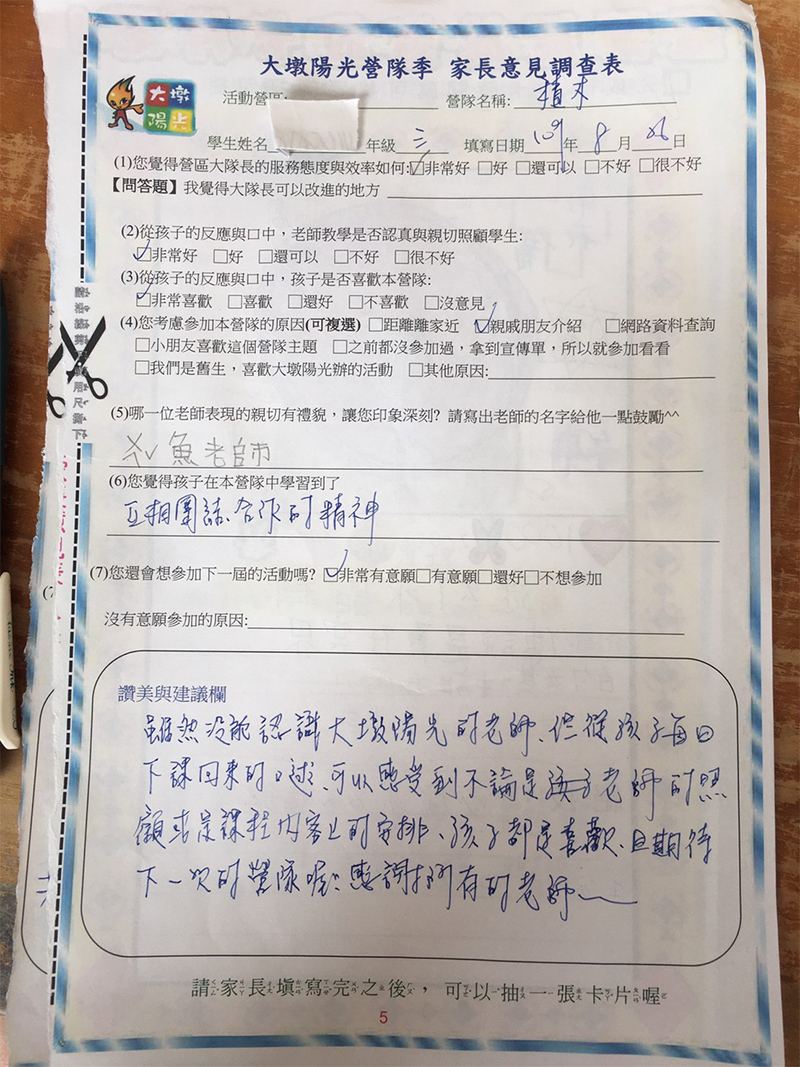 大墩陽光營隊季 家長意見調查表
大墩
陽光
活動營區: 營隊名稱: 積木
學生姓名 年級 三 填寫日期 109 年 8 月 26 日
(1)您覺得營區大隊長的服務態度與效率如何:☑非常好 □好 □還可以 □不好 □很不好
【問答題】我覺得大隊長可以改進的地方
(2)從孩子的反應與口中,老師教學是否認真與親切照顧學生:
☑非常好 □好 □還可以 □不好 □很不好
(3)從孩子的反應與口中,孩子是否喜歡本營隊:
☑非常喜歡 □喜歡 □還好 □不喜歡 □沒意見
(4)您考慮參加本營隊的原因(可複選) □距離離家近 ☑親戚朋友介紹 □網路資料查詢
□小朋友喜歡這個營隊主題 □之前都沒參加過,拿到宣傳單,所以就參加看看
□我們是舊生,喜歡大墩陽光辦的活動 □其他原因:
(5)哪一位老師表現的親切有禮貌,讓您印象深刻? 請寫出老師的名字給他一點鼓勵^^
魚老師
(6)您覺得孩子在本營隊中學習到了
互相團結、合作的精神
(7)您還會想參加下一屆的活動嗎? ☑非常有意願□有意願□還好□不想參加
沒有意願參加的原因:
讚美與建議欄
雖然沒能認識大墩陽光的老師、但從孩子每日
下課回來的口述、可以感受到不論是老師的照
顧或是課程內容上的安排、孩子都是喜歡、且期待
下一次的營隊喔!感謝所有的老師~
請家長填寫完之後,可以抽一張卡片喔
5